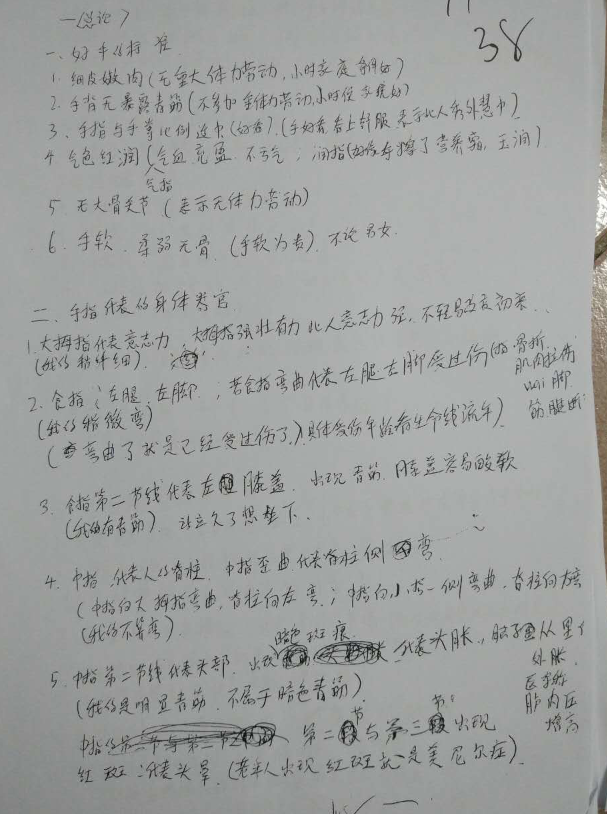 一（总论）
38
一、好手的标准
1. 细皮嫩肉（无重大体力劳动，小时家庭条件好）
2. 手背无暴露青筋（不参加重体力劳动，小时候家境好）
3. 手指与手掌比例适中（好看）。（手好看看上舒服 表示此人秀外慧中）
4. 气色红润（气血充盈 不亏气，润指（好像有擦了营养霜，玉润）
气指
5. 无大骨关节（表示无体力劳动）
6. 手软、柔弱无骨（手软为贵）不论男女.
二、手指代表的身体器官
1. 大拇指代表意志力，大拇指强壮有力 此人意志力强，不轻易改变初衷.
（我的稍伸细）.
2. 食指：左腿，左脚；若食指弯曲代表左腿左脚受过伤（骨折
（我的稍微弯） 肌肉拉伤
脚
（弯曲了就是已经受过伤了，）具体受伤年龄看生命线流年） 筋腱断
3. 食指第二节线代表左膝盖，出现青筋 膝盖容易酸软
（我的有青筋） 站立久了想坐下.
4. 中指 代表人的脊柱，中指歪曲代表脊柱侧弯
（中指向大拇指弯曲，脊柱向左弯；中指向小指一侧弯曲，脊柱向右弯
（我的不算弯）.
5. 中指第二节线代表头部，出现暗色斑痕 代表头胀，脑子从里
外胀，
（我的是明显青筋，不属于暗色青筋） 医学称
脑内压
增高
第二节与第三节出现
红斑：代表头晕.（老年人出现红斑就是美尼尔症）